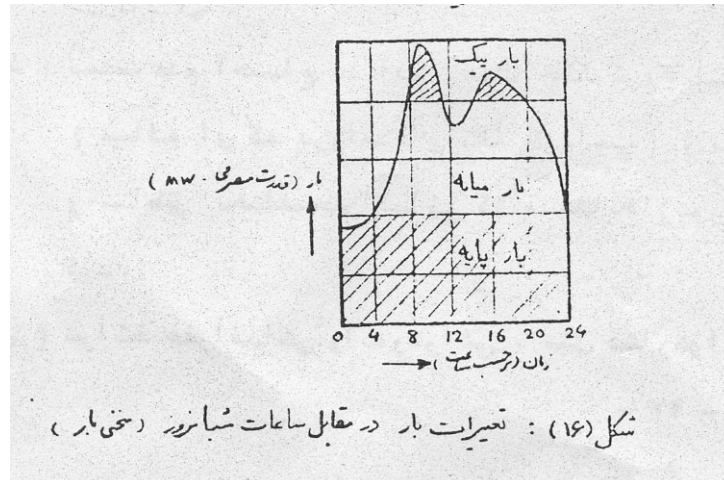 بار پیک
بار میانه
بار (قدرت مصرفی . MW)
بار پایه
0 4 8 12 16 20 24
زمان (برحسب ساعت)
شکل (۱۶) : تغییرات بار در مقابل ساعات شبانروز (منحنی بار)